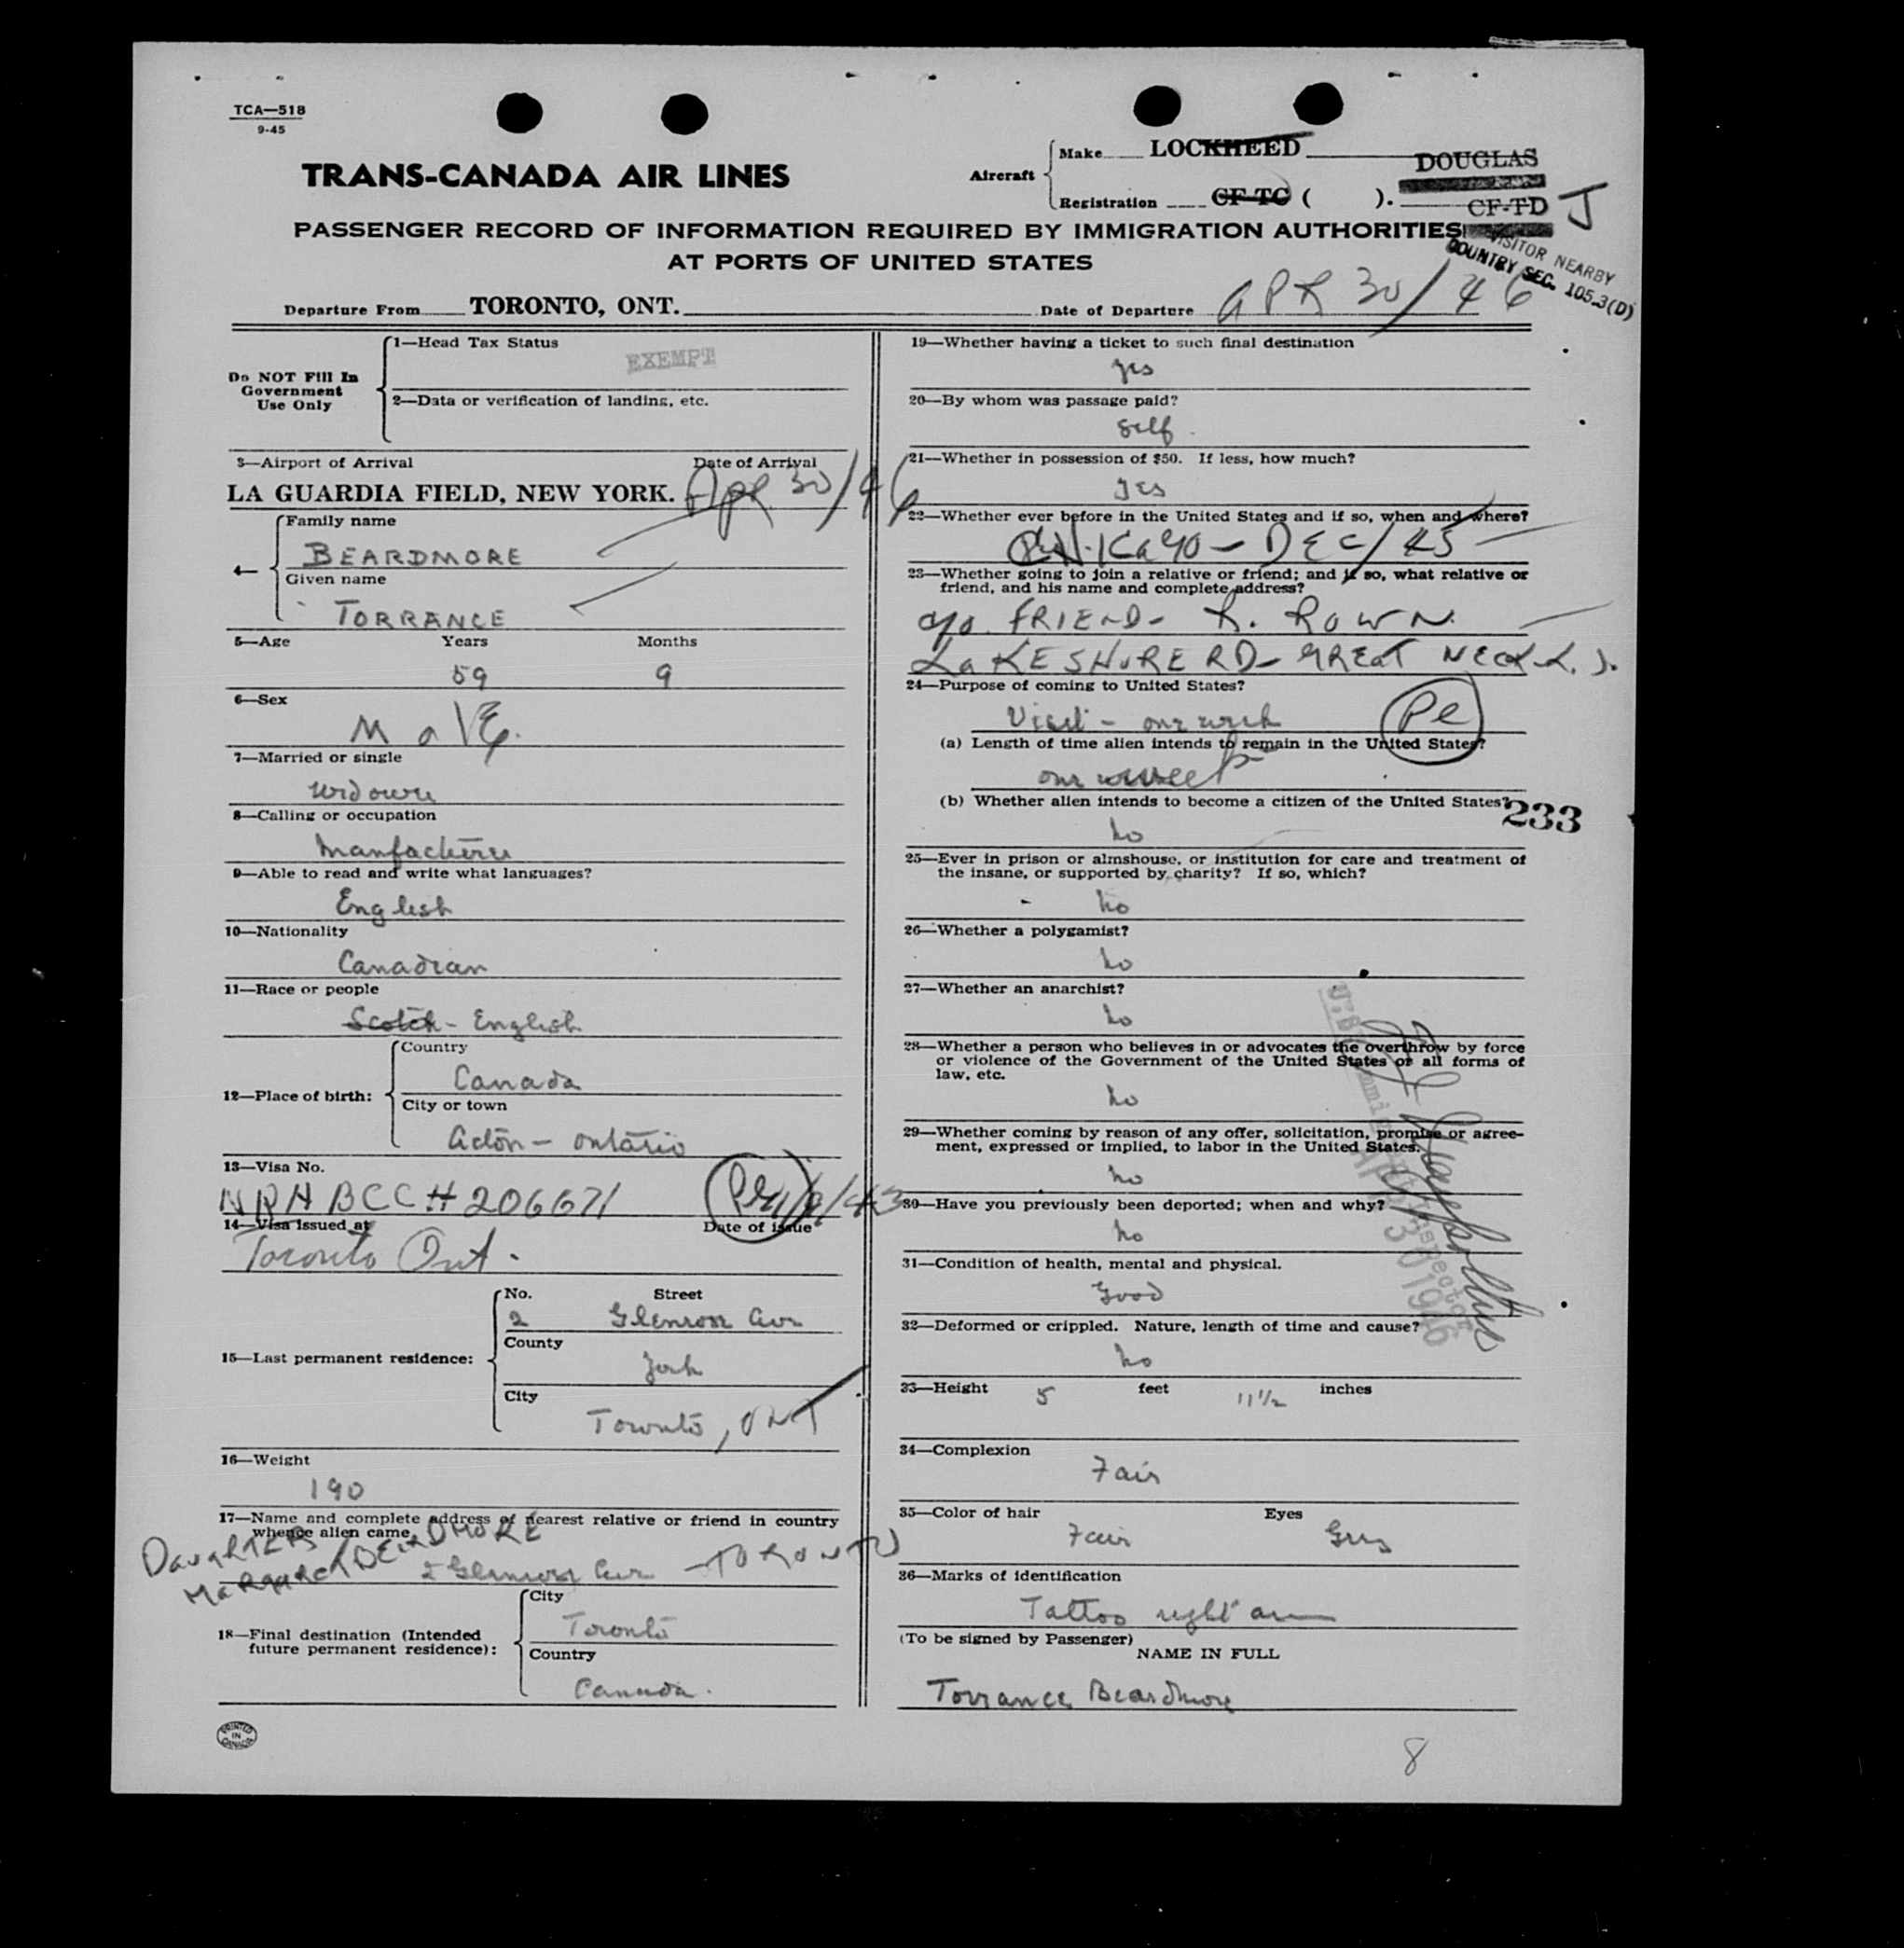 TCA—518
9-45
TRANS-CANADA AIR LINES
Aircraft
Make LOCKHEED
Registration CF-TC ( ).
DOUGLAS
CF-TD J
PASSENGER RECORD OF INFORMATION REQUIRED BY IMMIGRATION AUTHORITIES
AT PORTS OF UNITED STATES
VISITOR NEARBY
COUNTRY SEC. 105.3(D)
Departure From TORONTO, ONT.
Date of Departure APR 30/46
Do NOT Fill In
Government
Use Only
1—Head Tax Status
EXEMPT
2—Data or verification of landing, etc.
3—Airport of Arrival Date of Arrival
LA GUARDIA FIELD, NEW YORK. Apr 30/46
4—
Family name
BEARDMORE
Given name
TORRANCE
5—Age Years Months
59 9
6—Sex
MalE.
7—Married or single
8—Calling or occupation
9—Able to read and write what languages?
English
10—Nationality
Canadian
11—Race or people
Scotch - English
12—Place of birth:
Country
Canada
City or town
Acton - Ontario
13—Visa No.
BCC # 206671
14—Visa issued at Date of issue
Toronto Ont.
15—Last permanent residence:
No. Street
2 Glenrose Ave
County
York
City
Toronto, ONT
16—Weight
190
17—Name and complete address of nearest relative or friend in country
whence alien came.
DaughTER
MaRgaReT BEaRDMORE
2 Glenrose Ave TORONTO
18—Final destination (Intended
future permanent residence):
City
Toronto
Country
Canada.
PRINTED
IN
CANADA
19—Whether having a ticket to such final destination
Yes
20—By whom was passage paid?
Self
21—Whether in possession of $50. If less, how much?
Yes
22—Whether ever before in the United States and if so, when and where?
DEC/45
23—Whether going to join a relative or friend; and if so, what relative or
friend, and his name and complete address?
FRIEND- R. ROWN.
LaKESHORE RD- GREaT NECK L.I.
24—Purpose of coming to United States?
Visit - one week
(a) Length of time alien intends to remain in the United States?
one week
(b) Whether alien intends to become a citizen of the United States?
233
no
25—Ever in prison or almshouse, or institution for care and treatment of
the insane, or supported by charity? If so, which?
no
26—Whether a polygamist?
no
27—Whether an anarchist?
no
28—Whether a person who believes in or advocates the overthrow by force
or violence of the Government of the United States or all forms of
law, etc.
no
29—Whether coming by reason of any offer, solicitation, promise or agree-
ment, expressed or implied, to labor in the United States.
no
30—Have you previously been deported; when and why?
no
31—Condition of health, mental and physical.
Good
32—Deformed or crippled. Nature, length of time and cause?
no
33—Height 5 feet 11 1/2 inches
34—Complexion
Fair
35—Color of hair Eyes
Fair Grey
36—Marks of identification
Tattoo right arm
(To be signed by Passenger)
NAME IN FULL
Torrance Beardmore
8